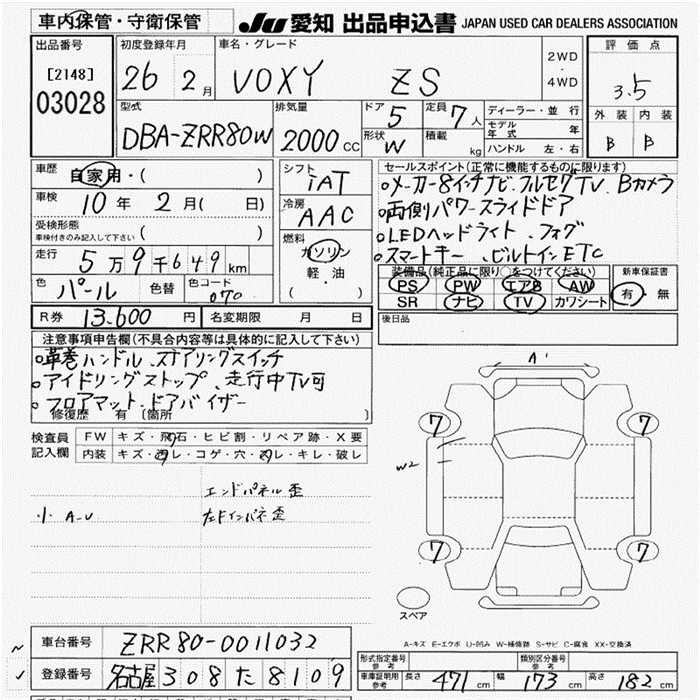 車内保管・守衛保管
JU 愛知 出品申込書 JAPAN USED CAR DEALERS ASSOCIATION
出品番号
[2148]
03028
初度登録年月
26 2月
車名・グレード
VOXY ZS
2WD
・
4WD
評価点
3.5
外装 内装
B B
型式
DBA-ZRR80W
排気量
2000 CC
ドア 5
形状 W
定員 7人
積載 kg
ディーラー・並行
モデル年式 年
ハンドル 左・右
車歴
自家用・( )
車検
10年 2月( 日)
受検形態
車検付きのみ記入して下さい ( )
走行
5万9千649km
色 パール 色替 色コード 070
シフト
IAT
冷房
AAC
燃料
ガソリン
軽・油
( )
セールスポイント(正常に機能するものに限ります)
○メーカー8インチナビ、フルセグTV、Bカメラ
○両側パワースライドドア
○LEDヘッドライト、フォグ
○スマートキー、ビルトインETC
装備品(純正品に限り○をつけてください)
PS PW エアB AW
SR ナビ TV カワシート
新車保証書
有・無
R券 13,600円 名変期限 月 日
後日品
注意事項申告欄(不具合内容等は具体的に記入して下さい)
○革巻ハンドル、ステアリングスイッチ
○アイドリングストップ、走行中TV可
○フロアマット、ドアバイザー
修復歴 有〔箇所
検査員記入欄
FW キズ・飛石・ヒビ割・リペア跡・X要
内装 キズ・汚レ・コゲ・穴・スレ・キレ・破レ
エンドパネル歪
小 A-U 左Fインパネ歪
A'
7 7
W2
7 7
スペア
A-キズ E-エクボ U-凹み W-補修跡 S-サビ C-腐食 XX-交換済
車台番号 ZRR80-0011032
登録番号 名古屋 308 た 8109
形式指定番号 参考 類別区分番号 参考
車庫証明用参考 長さ 471cm 幅 173cm 高さ 182cm